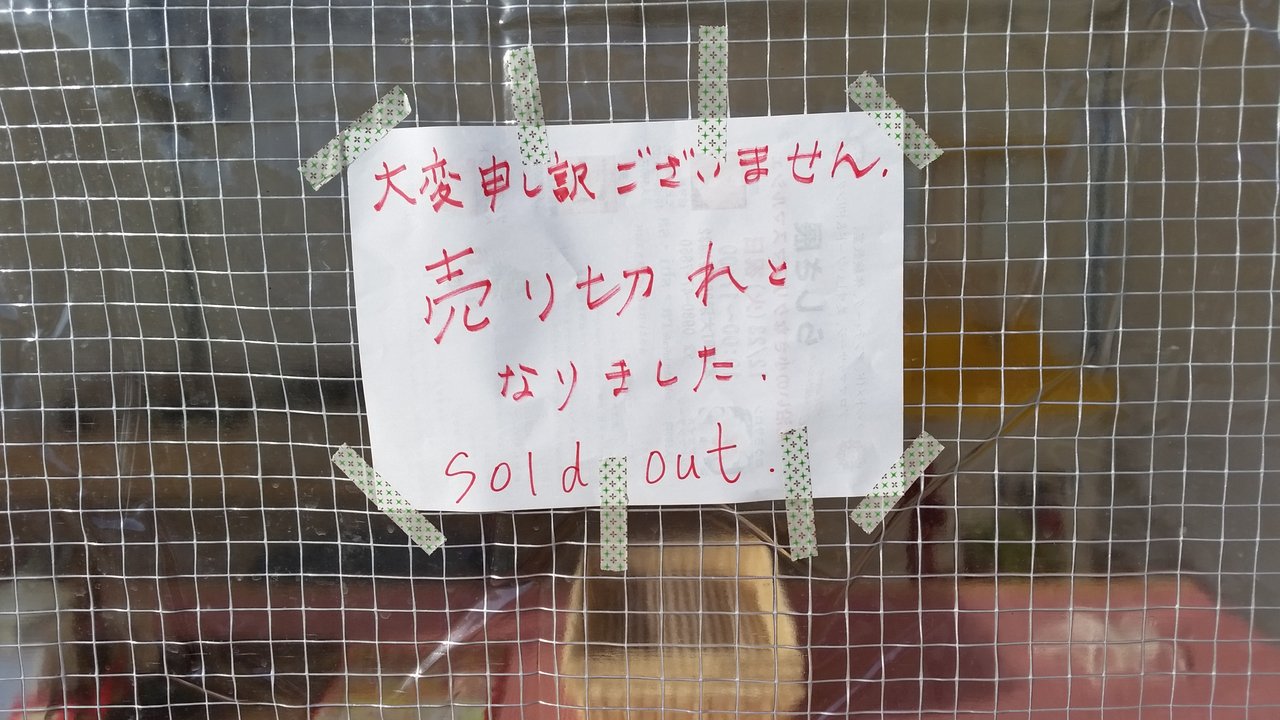 大変申し訳ございません.
売り切れと
なりました.
sold out.